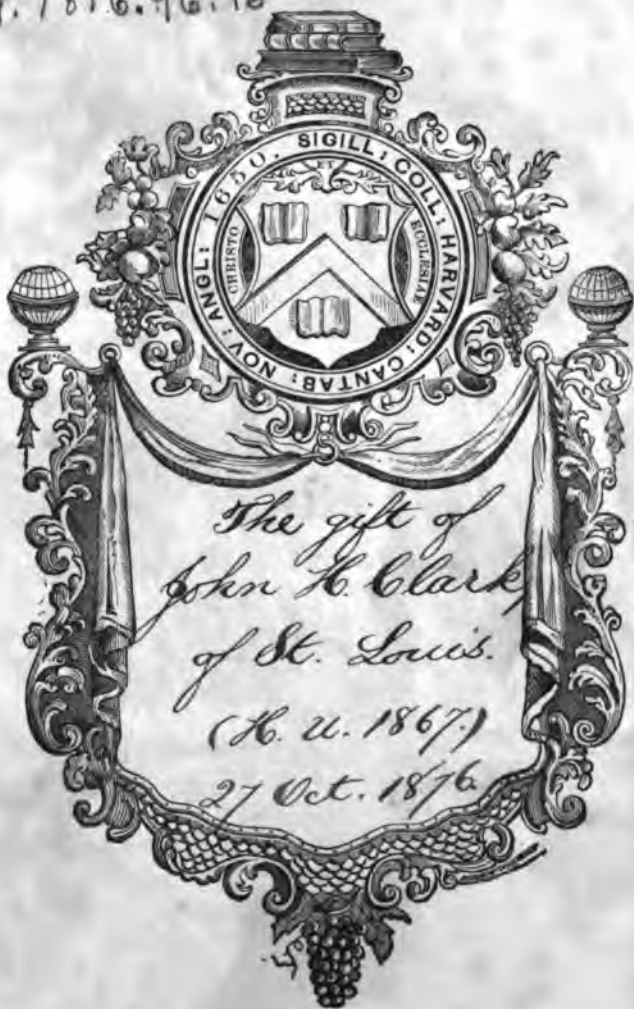 SIGILL: COLL: HARVARD: CANTAB: NOV: ANGL: 1650.
CHRISTO
ET
ECCLESIAE
The gift of
John H. Clark,
of St. Louis.
(H. U. 1867.)
27 Oct. 1876.